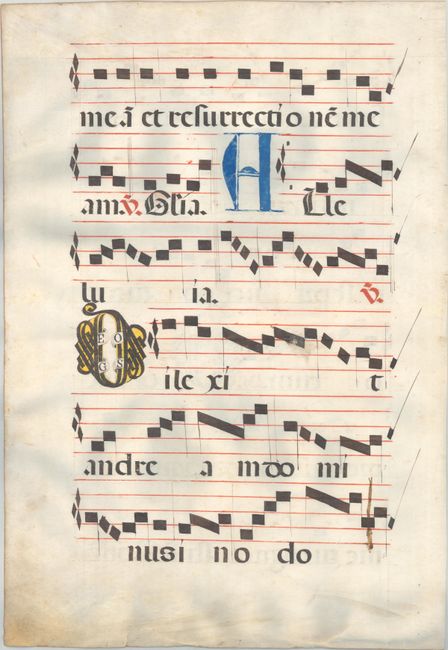 me. ā et resurrectio nē me
am. ℣. Glīa. A Lle
lu ia. ℣.
D ile xi t
EO
GS
andre a m do mi
nus i n o do